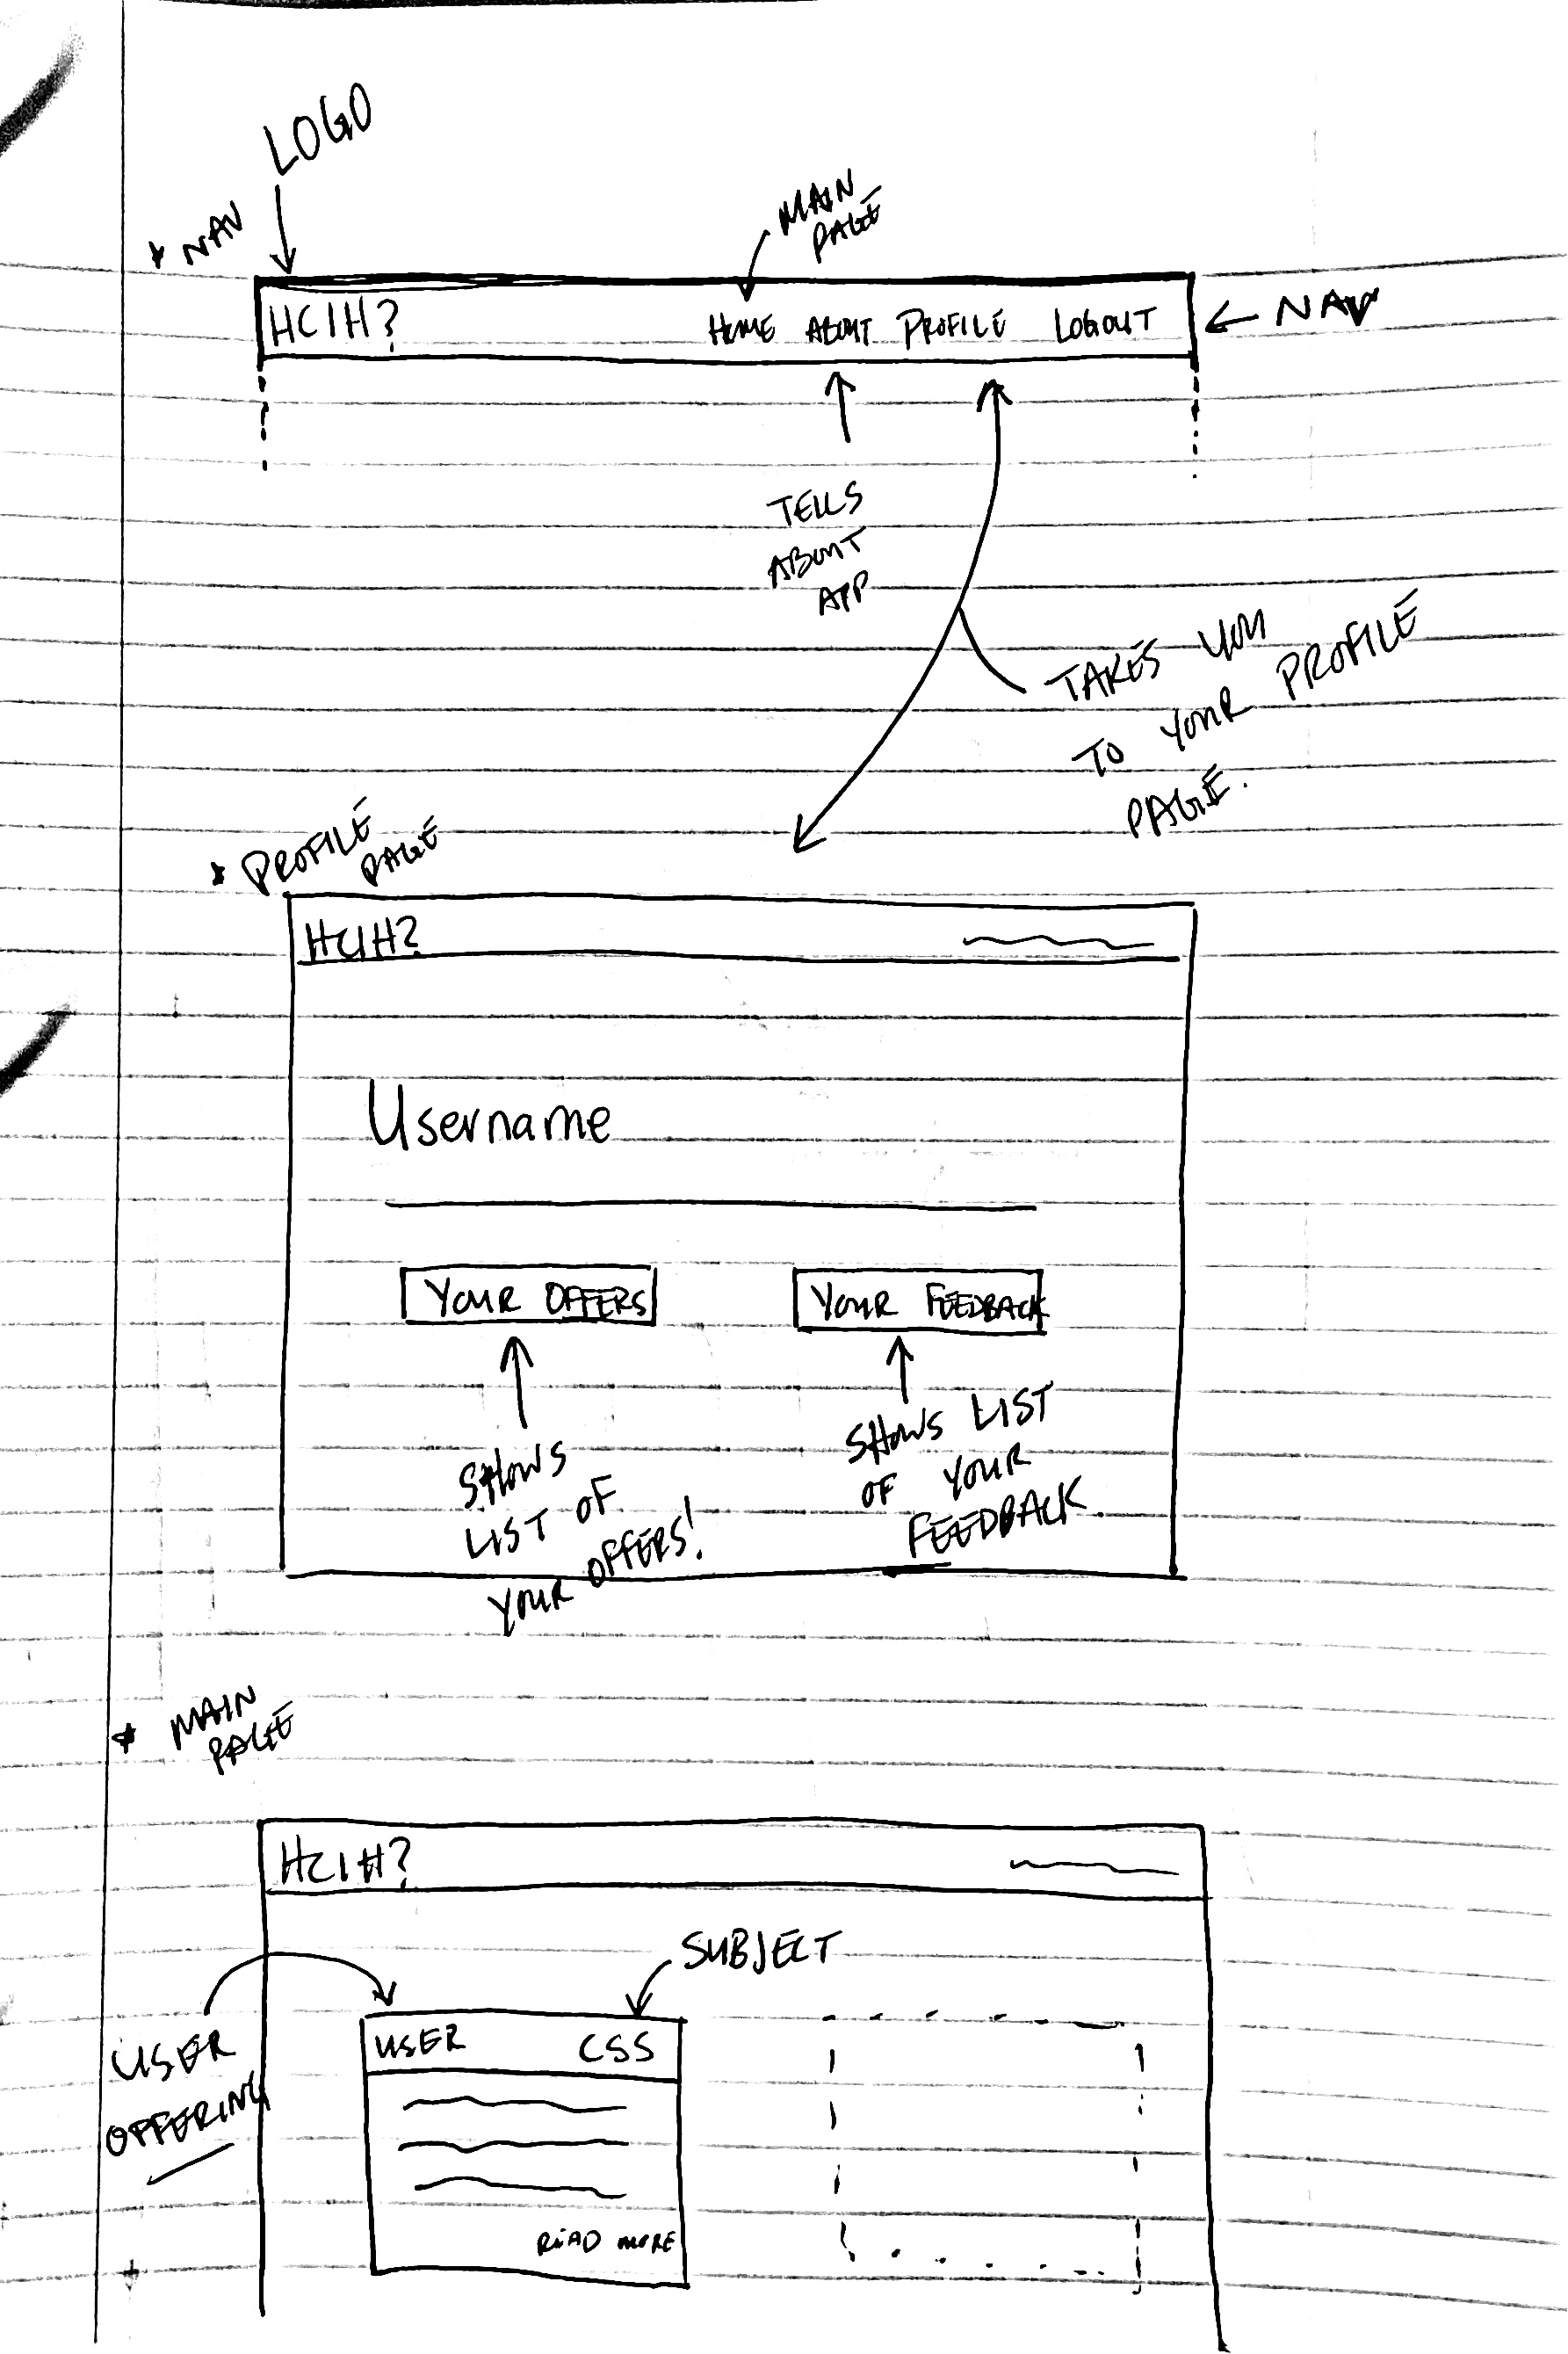 LOGO
* NAV
MAIN
PAGE
HCIH?
HOME ABOUT PROFILE LOGOUT
NAV
TELLS
ABOUT
APP
TAKES YOU
TO YOUR PROFILE
PAGE.
* PROFILE
PAGE
HCIH?
Username
YOUR OFFERS
YOUR FEEDBACK
SHOWS
LIST OF
YOUR OFFERS!
SHOWS LIST
OF YOUR
FEEDBACK
* MAIN
PAGE
HCIH?
SUBJECT
USER
OFFERING
USER CSS
READ MORE